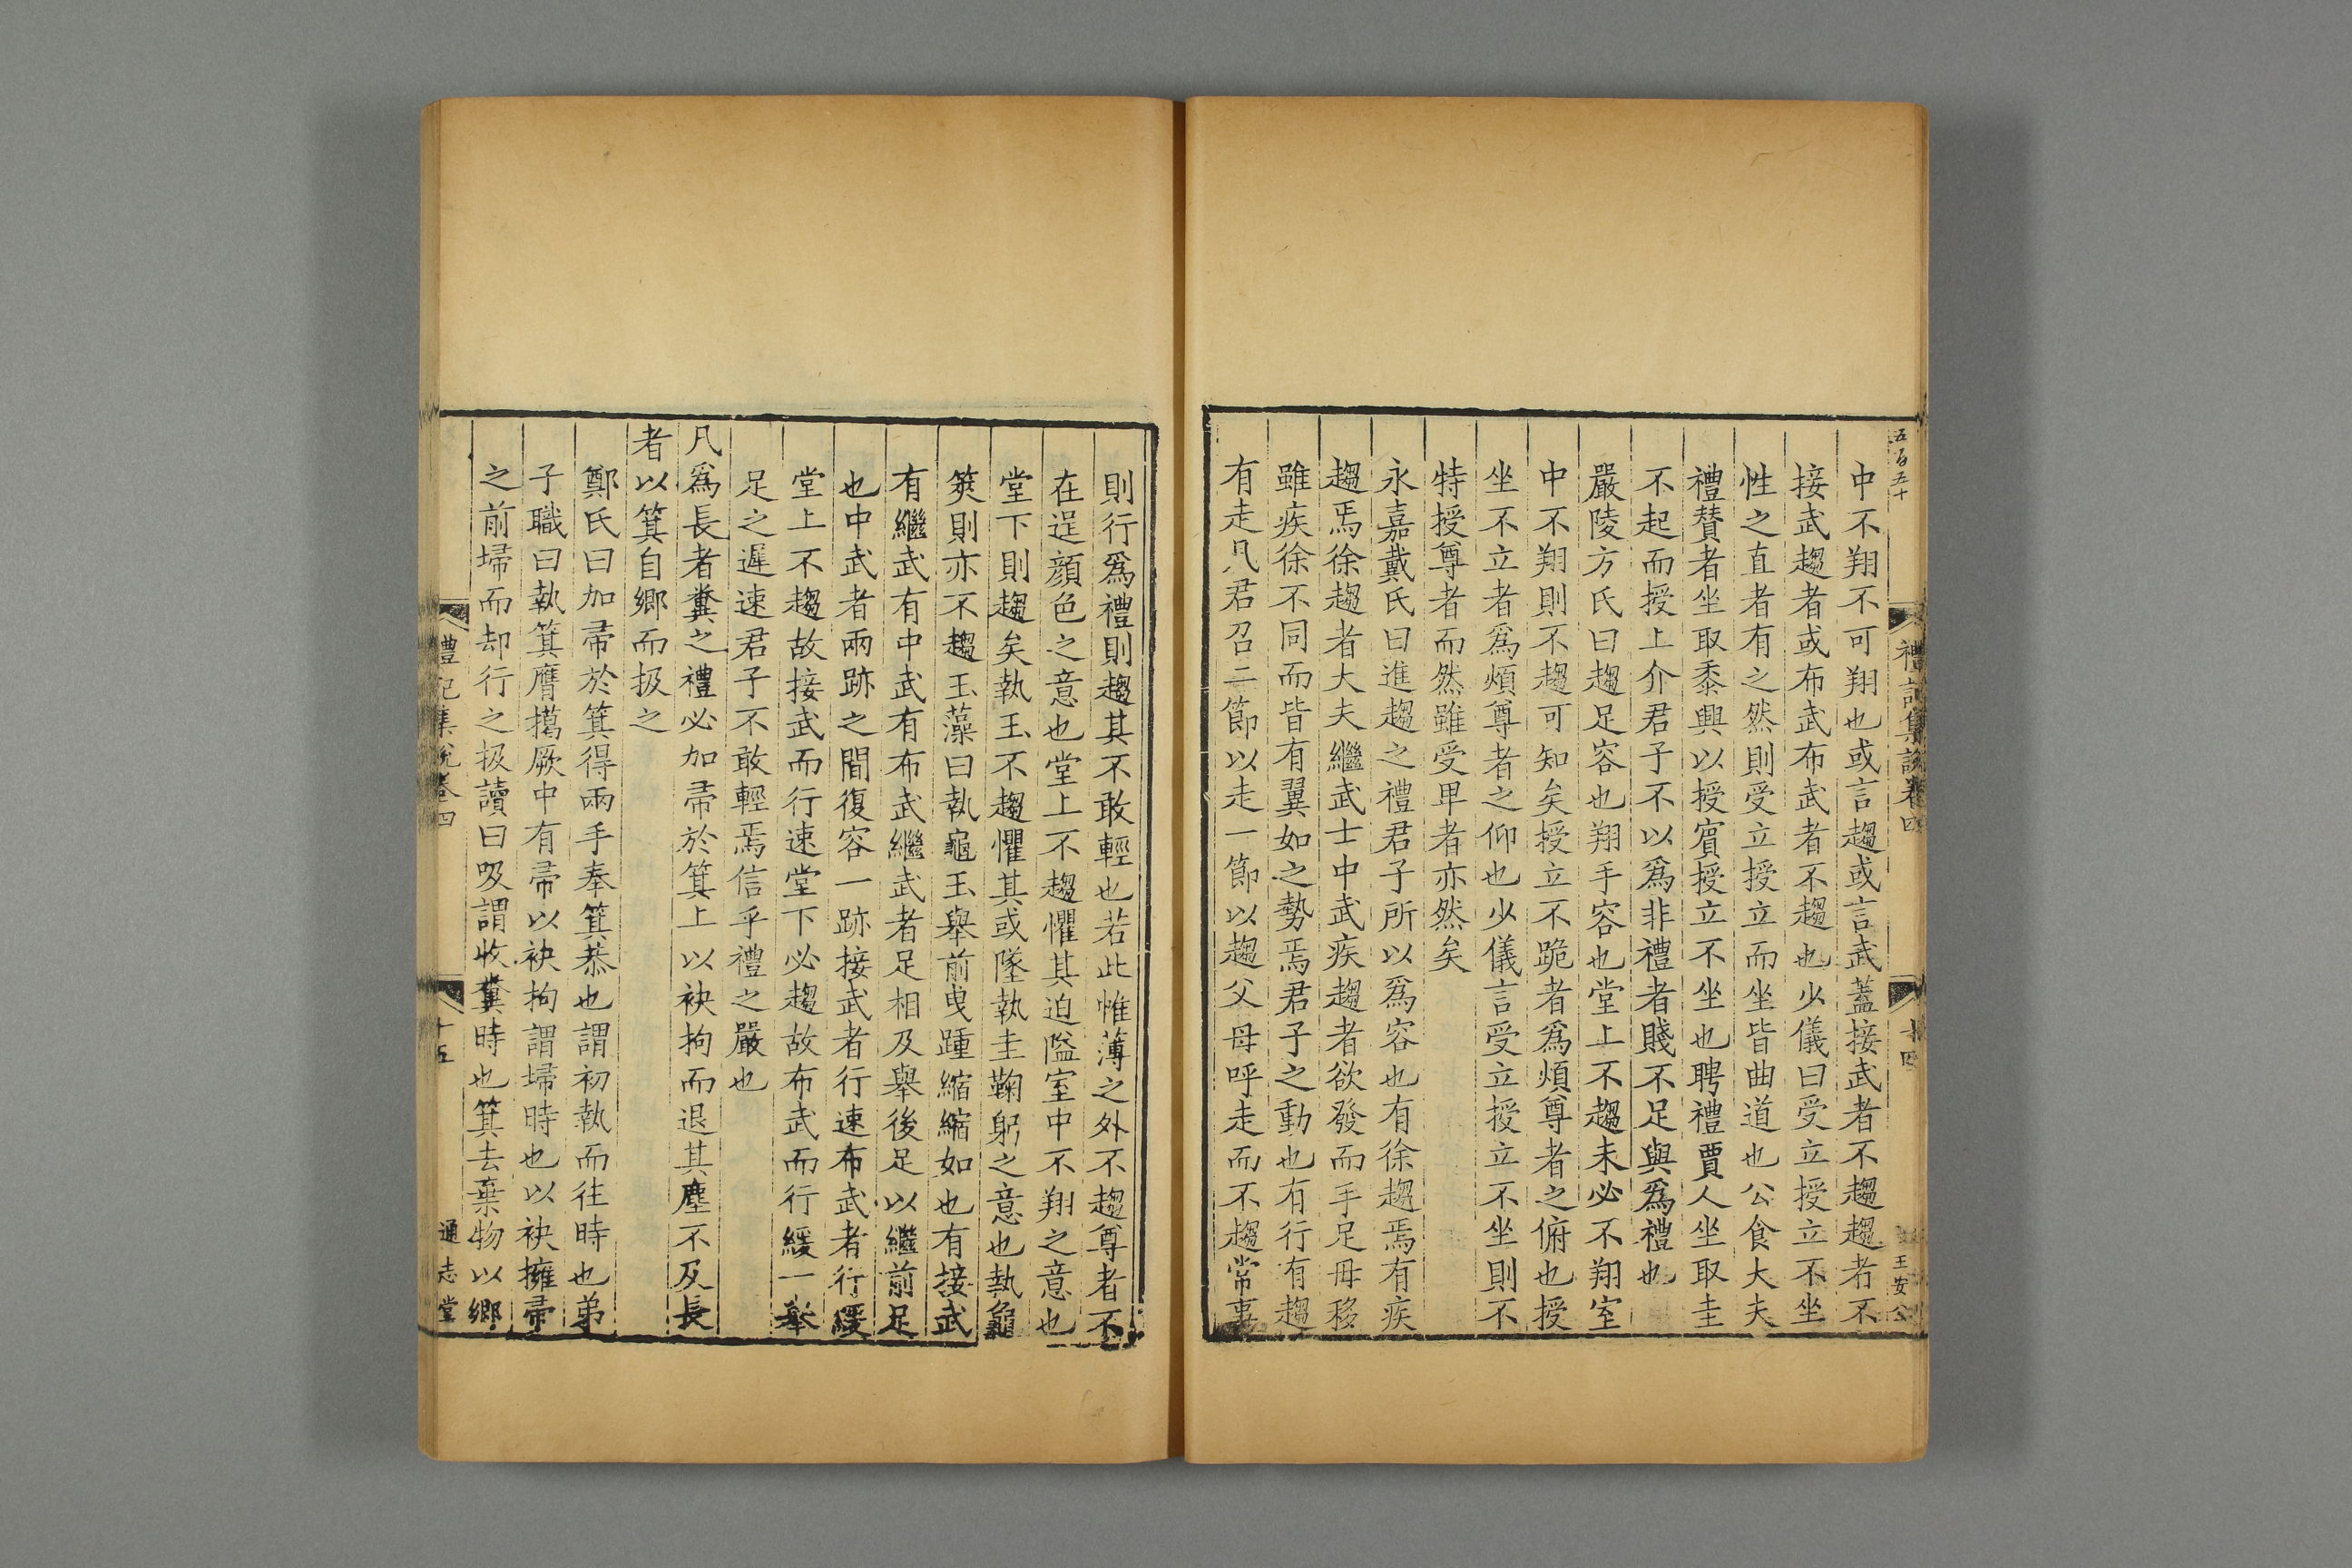 五百五十
禮記集說卷四
十四
王安公
中不翔不可翔也或言趨或言武蓋接武者不趨趨者不
接武趨者或布武布武者不趨也少儀曰受立授立不坐
性之直者有之然則受立授立而坐皆曲道也公食大夫
禮賛者坐取黍興以授賓授立不坐也聘禮賈人坐取圭
不起而授上介君子不以爲非禮者賤不足與爲禮也
嚴陵方氏曰趨足容也翔手容也堂上不趨未必不翔室
中不翔則不趨可知矣授立不跪者爲煩尊者之俯也授
坐不立者爲煩尊者之仰也少儀言受立授立不坐則不
特授尊者而然雖受卑者亦然矣
永嘉戴氏曰進趨之禮君子所以爲容也有徐趨焉有疾
趨焉徐趨者大夫繼武士中武疾趨者欲發而手足毋移
雖疾徐不同而皆有翼如之勢焉君子之動也有行有趨
有走凡君召二節以走一節以趨父母呼走而不趨常事
則行爲禮則趨其不敢輕也若此惟薄之外不趨尊者不
在逞顔色之意也堂上不趨懼其迫隘室中不翔之意也
堂下則趨矣執玉不趨懼其或墜執圭鞠躬之意也執龜
筴則亦不趨玉藻曰執龜玉舉前曳踵縮縮如也有接武
有繼武有中武有布武繼武者足相及舉後足以繼前足
也中武者兩跡之間復容一跡接武者行速布武者行緩
堂上不趨故接武而行速堂下必趨故布武而行緩一舉
足之遲速君子不敢輕焉信乎禮之嚴也
凡爲長者糞之禮必加帚於箕上以袂拘而退其塵不及長
者以箕自鄉而扱之
鄭氏曰加帚於箕得兩手奉箕恭也謂初執而往時也弟
子職曰執箕膺擖厥中有帚以袂拘謂埽時也以袂擁帚
之前埽而却行之扱讀曰吸謂收糞時也箕去棄物以鄉
禮記集說卷四
十五
通志堂